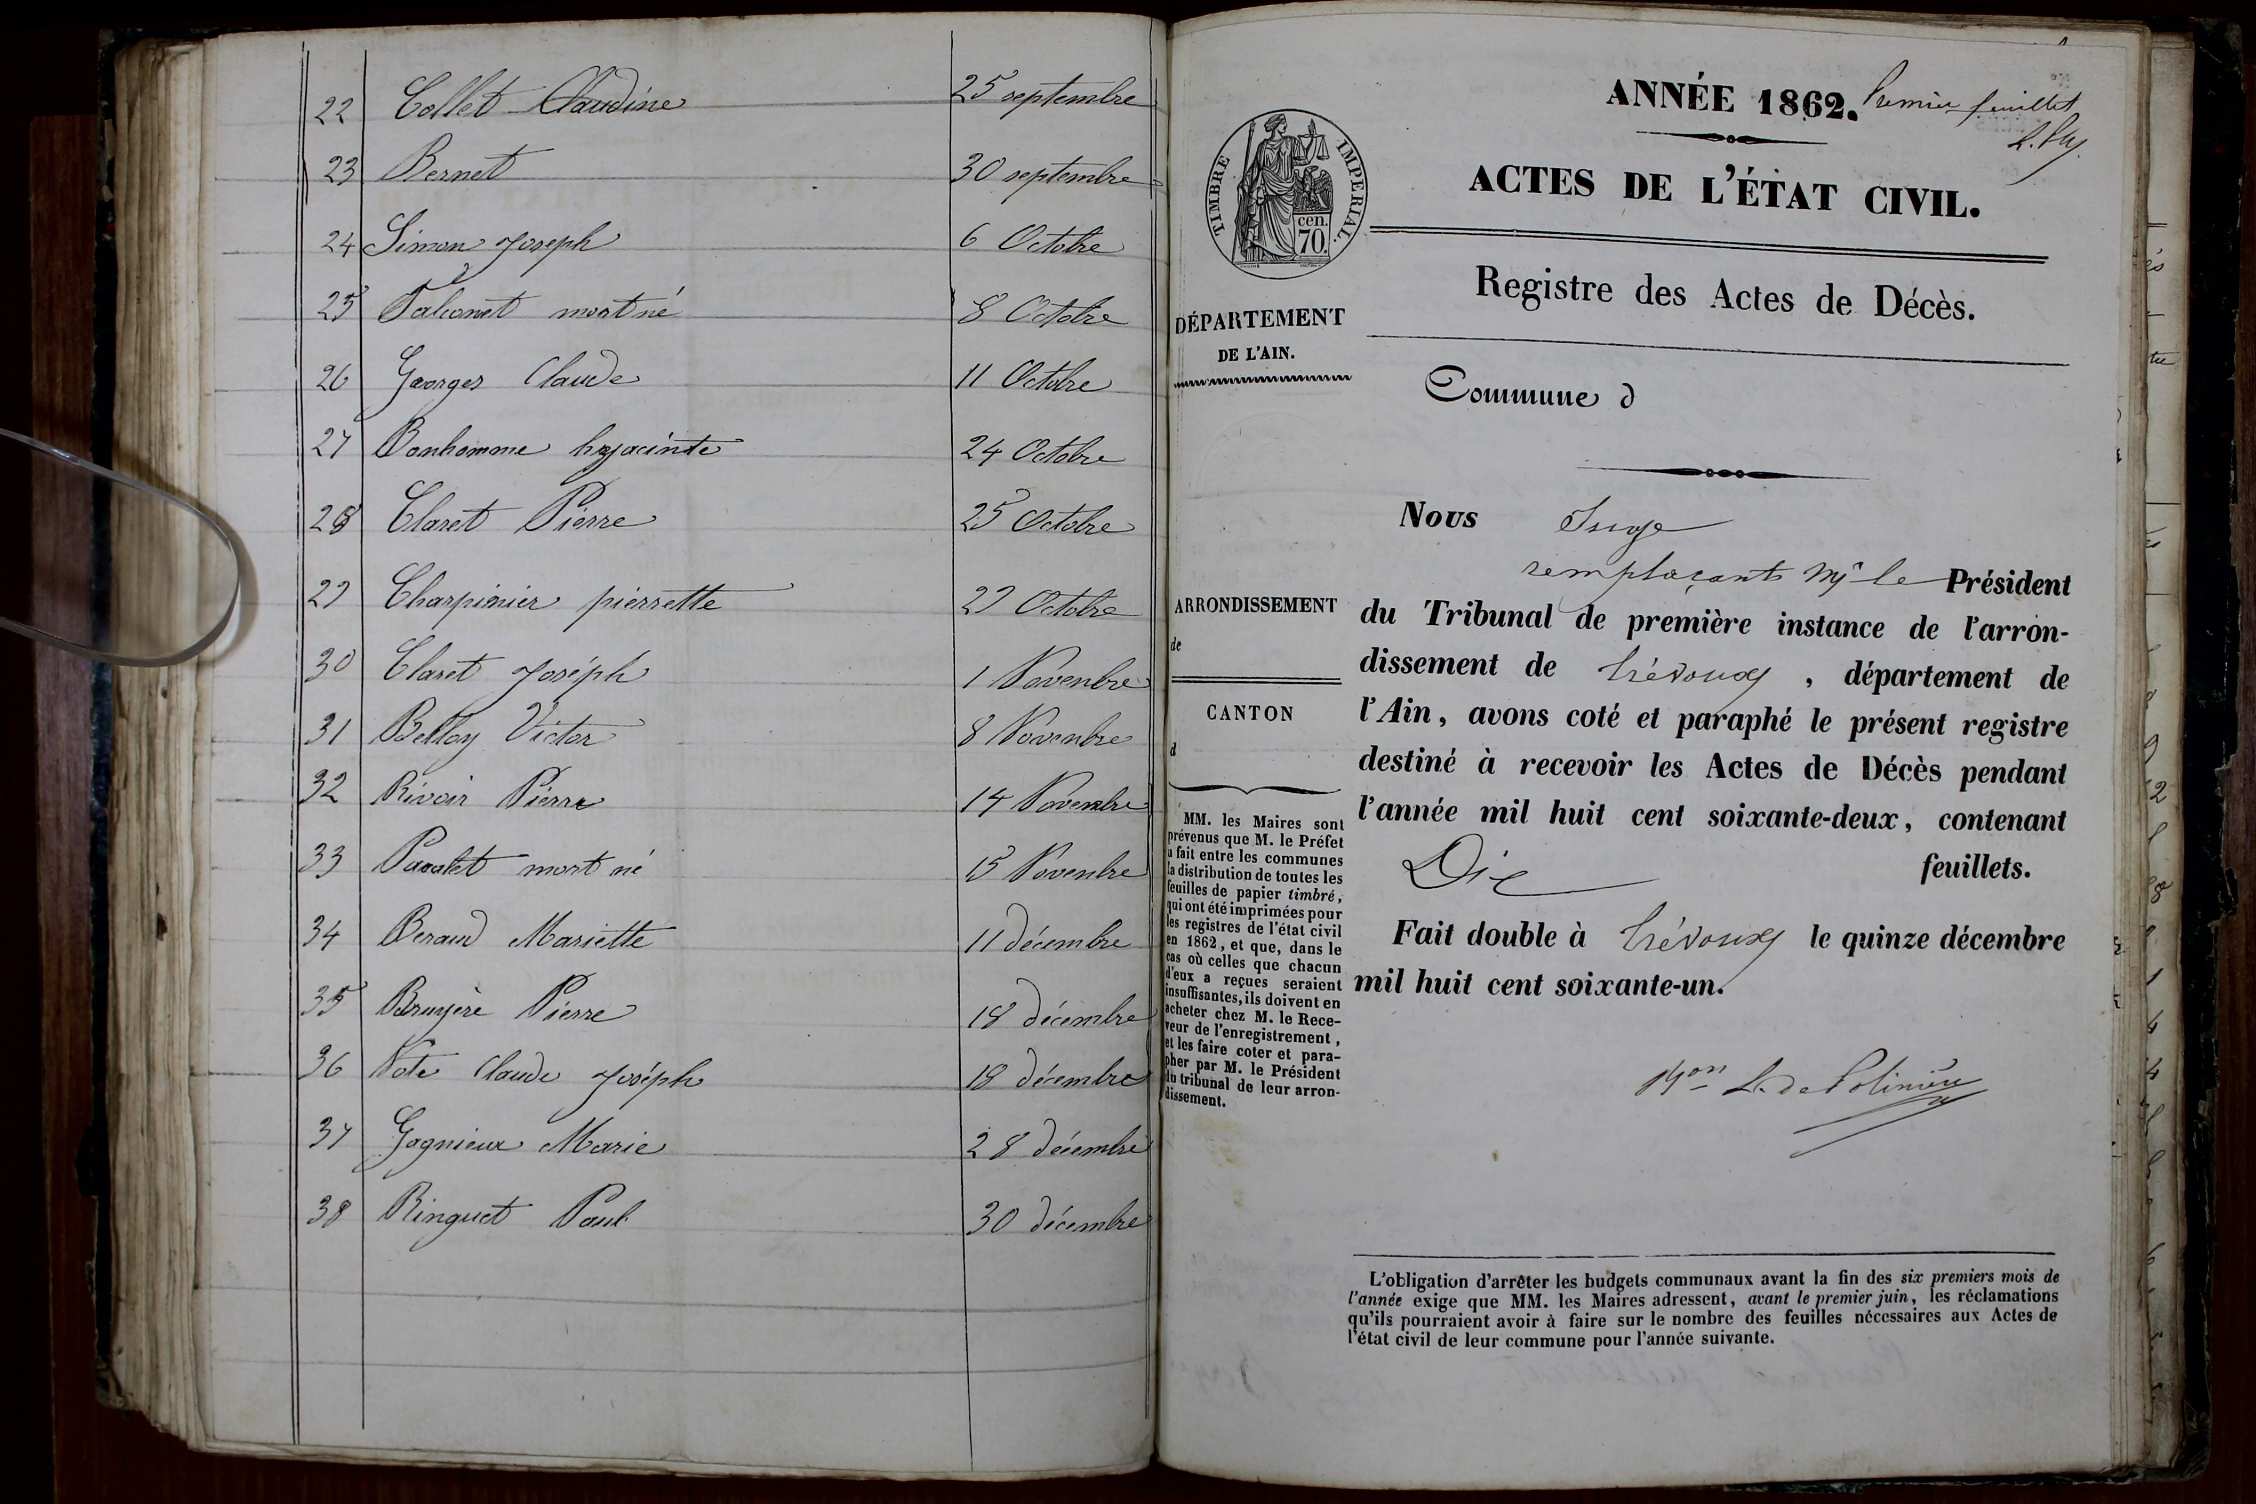 22 Collet Claudine 25 septembre
23 Bernet 30 septembre
24 Simon Joseph 6 Octobre
25 Falconet mort né 8 Octobre
26 Georges Claude 11 Octobre
27 Bonhomme hyacinte 24 Octobre
28 Claret Pierre 25 Octobre
29 Charpinier pierrette 29 Octobre
30 Claret Joséph 1 Novenbre
31 Belloy Victor 8 Novenbre
32 Rivoir Pierre 14 Novembre
33 mort né 15 Novenbre
34 Beraud Mariette 11 décembre
35 Bruyère Pierre 18 décembre
36 Note Claude Joséph 18 décembre
37 Gagnieux Marie 28 décembre
38 Ringuet Paul 30 décembre
ANNÉE 1862. Premier feuillet
ACTES DE L'ÉTAT CIVIL.
TIMBRE IMPERIAL.
cen.
70.
Registre des Actes de Décès.
DÉPARTEMENT
DE L'AIN.
Commune d
Nous Juge
remplaçant Mr le Président
du Tribunal de première instance de l'arron-
dissement de Trévoux, département de
l'Ain, avons coté et paraphé le présent registre
destiné à recevoir les Actes de Décès pendant
l'année mil huit cent soixante-deux, contenant
Dix feuillets.
Fait double à Trévoux le quinze décembre
mil huit cent soixante-un.
L. de Polinière
ARRONDISSEMENT
de
CANTON
d
MM. les Maires sont
prévenus que M. le Préfet
a fait entre les communes
la distribution de toutes les
feuilles de papier timbré,
qui ont été imprimées pour
les registres de l'état civil
en 1862, et que, dans le
cas où celles que chacun
d'eux a reçues seraient
insuffisantes, ils doivent en
acheter chez M. le Rece-
veur de l'enregistrement,
et les faire coter et para-
pher par M. le Président
du tribunal de leur arron-
dissement.
L'obligation d'arrêter les budgets communaux avant la fin des six premiers mois de
l'année exige que MM. les Maires adressent, avant le premier juin, les réclamations
qu'ils pourraient avoir à faire sur le nombre des feuilles nécessaires aux Actes de
l'état civil de leur commune pour l'année suivante.